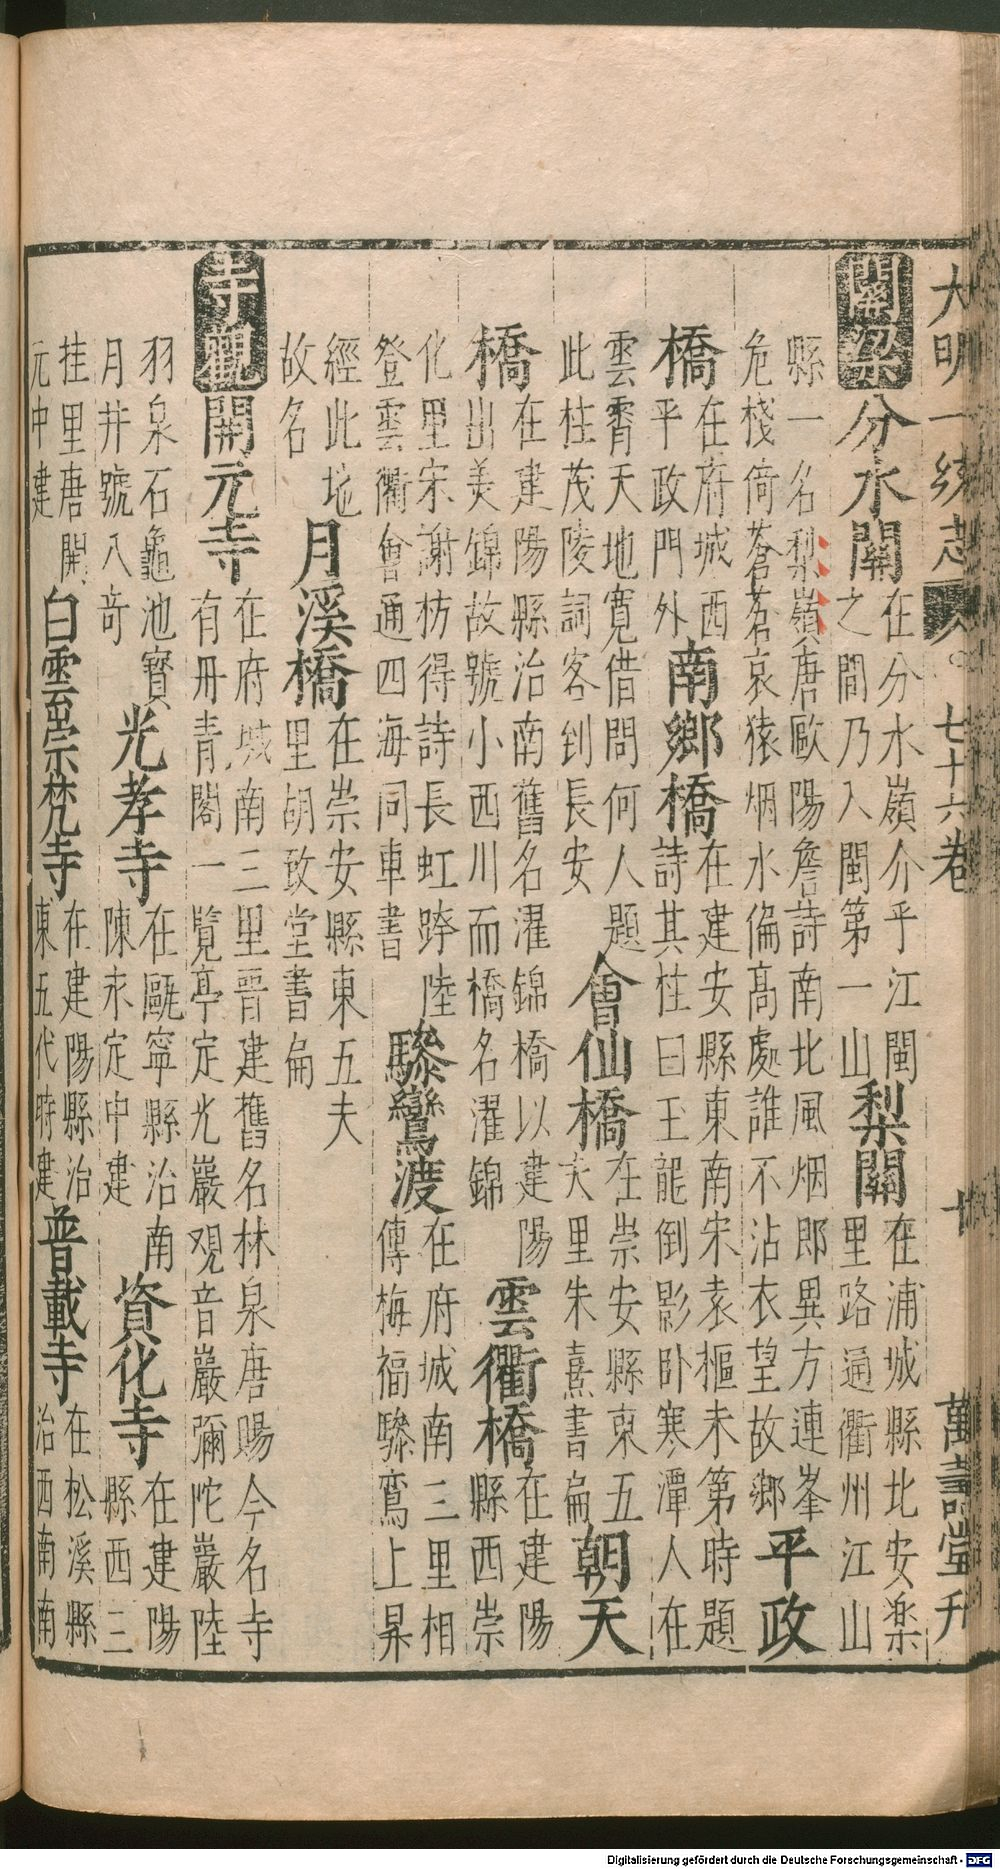 大明一統志 七十六卷 十 萬壽堂刊
關梁
分水關
在分水嶺介乎江閩
之間乃入閩第一山
梨關
在浦城縣北安樂
里路通衢州江山
縣一名梨嶺唐歐陽詹詩南北風烟郎異方連峯
危棧倚蒼茗哀猿烟水偏高處誰不沾衣望故鄉
平政
橋
在府城西
平政門外
南鄉橋
在建安縣東南宋袁樞未第時題
詩其柱曰玉龍倒影卧寒潭人在
雲霄天地寛借問何人題
此柱茂陵詞客到長安
會仙橋
在崇安縣東五
夫里朱熹書扁
朝天
橋
在建陽縣治南舊名濯錦橋以建陽
出美錦故號小西川而橋名濯錦
雲衢橋
在建陽
縣西崇
化里宋謝枋得詩長虹跨陸
登雲衢會通四海同車書
驂鸞渡
在府城南三里相
傳梅福驂鸞上昇
經此地
故名
月溪橋
在崇安縣東五夫
里胡致堂書扁
寺觀
開元寺
在府城南三里晋建舊名林泉唐賜今名寺
有丹青閣一覽亭定光巖观音巖彌陀巖陸
羽泉石龜池寳
月井號八奇
光孝寺
在甌寧縣治南
陳永定中建
資化寺
在建陽
縣西三
挂里唐開
元中建
白雲崇梵寺
在建陽縣治
東五代時建
普載寺
在松溪縣
治西南南
Digitalisierung gefördert durch die Deutsche Forschungsgemeinschaft - DFG